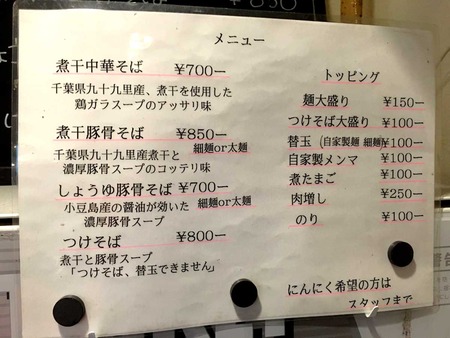 メニュー
煮干中華そば ¥700ー
千葉県九十九里産、煮干を使用した
鶏ガラスープのアッサリ味
煮干豚骨そば ¥850ー
千葉県九十九里産煮干と 細麺or太麺
濃厚豚骨スープのコッテリ味
しょうゆ豚骨そば ¥700ー
小豆島産の醤油が効いた 細麺or太麺
濃厚豚骨スープ
つけそば ¥800ー
煮干と豚骨スープ
「つけそば、替玉できません」
トッピング
麺大盛り ¥150ー
つけそば大盛り ¥100ー
替玉 (自家製麺 細麺) ¥100ー
自家製メンマ ¥100ー
煮たまご ¥100ー
肉増し ¥250ー
のり ¥100ー
にんにく希望の方は
スタッフまで